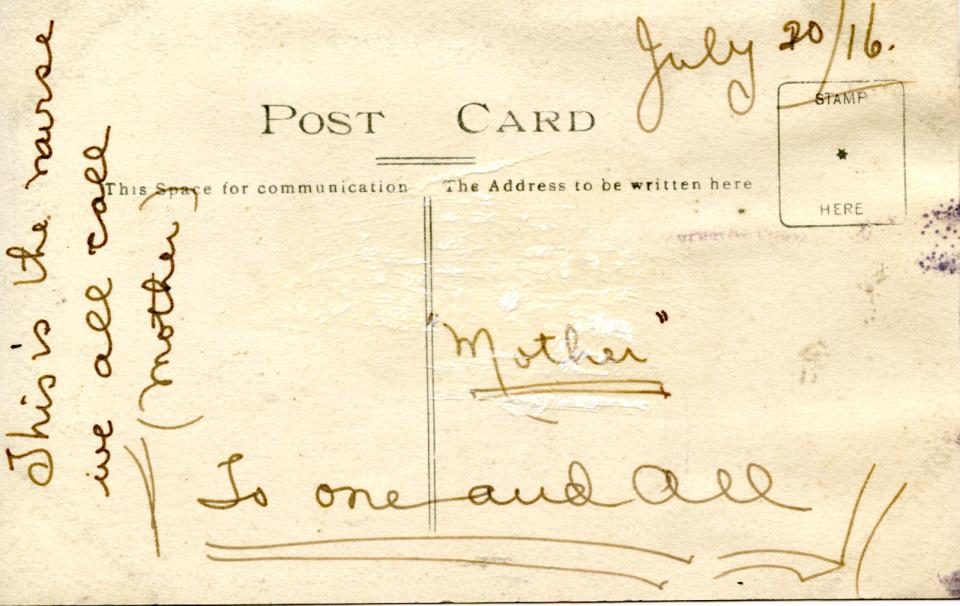 July 20/16.
POST CARD
STAMP
HERE
This Space for communication
The Address to be written here
This is the nurse
we all call
(Mother)
"Mother"
To one and All